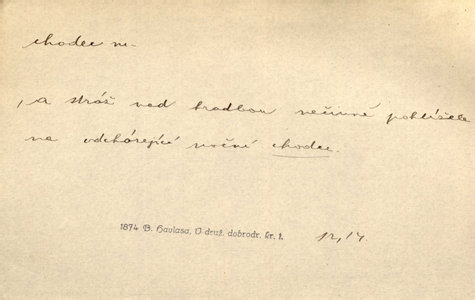 chodec m.
, a stráž nad hradbou nečinně pohlížela
na odcházející noční chodce.
1874 B. Havlasa, V druž. dobrodr. kr. 1.
12, 14.